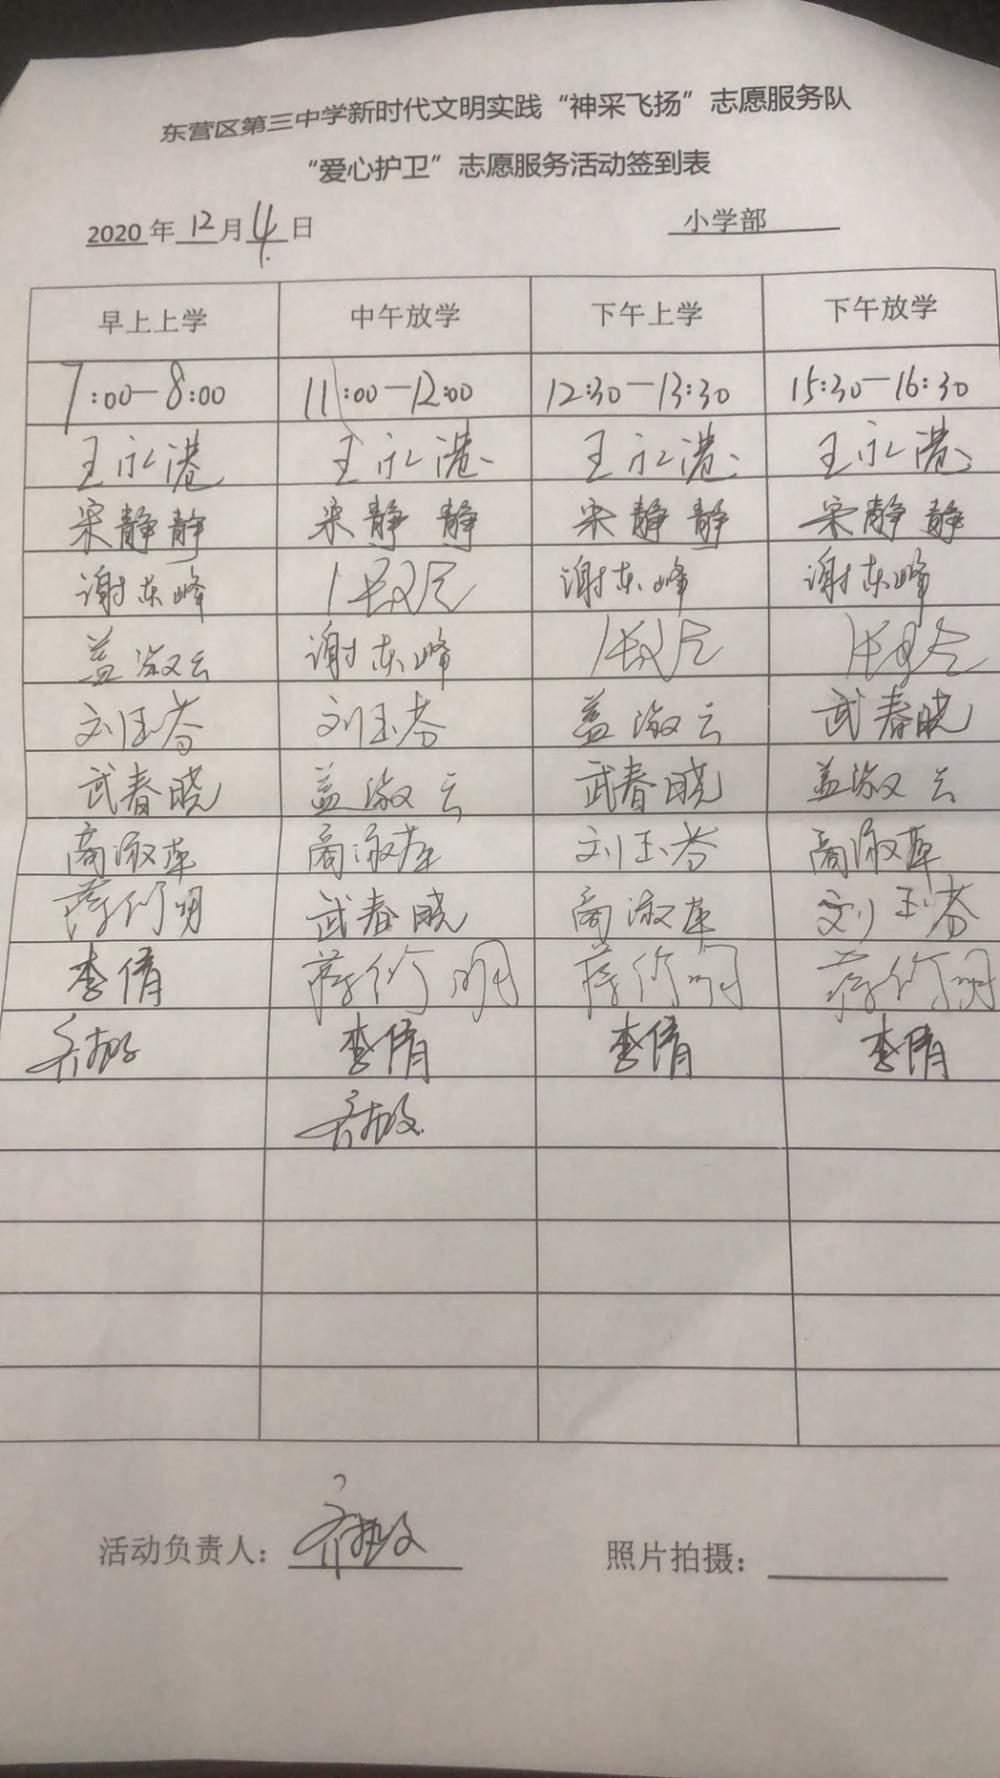 东营区第三中学新时代文明实践“神采飞扬”志愿服务队
“爱心护卫”志愿服务活动签到表
2020年12月4日 小学部
早上上学 中午放学 下午上学 下午放学
7:00—8:00 11:00—12:00 12:30—13:30 15:30—16:30
王永港 王永港 王永港 王永港
宋静静 宋静静 宋静静 宋静静
谢东峰 谢东峰 谢东峰
盖淑云 谢东峰
刘玉芬 刘玉芬 盖淑云 武春晓
武春晓 盖淑云 武春晓 盖淑云
商淑萍 商淑萍 刘玉芬 商淑萍
武春晓 商淑萍 刘玉芬
李倩
李倩 李倩 李倩
活动负责人： 照片拍摄：